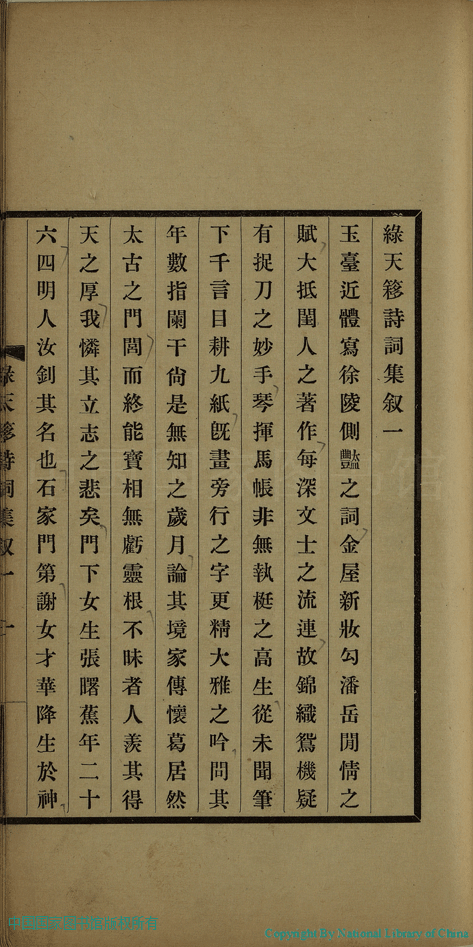 綠天簃詩詞集叙一
玉臺近體寫徐陵側豔之詞金屋新妝勾潘岳閒情之
賦大抵閨人之著作每深文士之流連故錦織鴛機疑
有捉刀之妙手琴揮馬帳非無執梃之高生從未聞筆
下千言目耕九紙旣畫旁行之字更精大雅之吟問其
年數指闌干尙是無知之歲月論其境家傳懷葛居然
太古之門閭而終能寶相無虧靈根不昧者人羨其得
天之厚我憐其立志之悲矣門下女生張曙蕉年二十
六四明人汝釗其名也石家門第謝女才華降生於神
綠天簃詩詞集叙一
一
Copyright By National Library of China